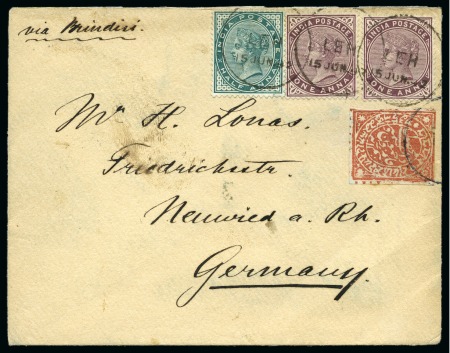 via Brindisi.
INDIA POSTAGE
HALF ANNA
INDIA POSTAGE
ONE ANNA
INDIA POSTAGE
ONE ANNA
LEH
15 JUN
LEH
15 JUN
LEH
15 JUN
Mr H. Lonas.
Friedrichstr.
Neuwied a. Rh.
Germany.